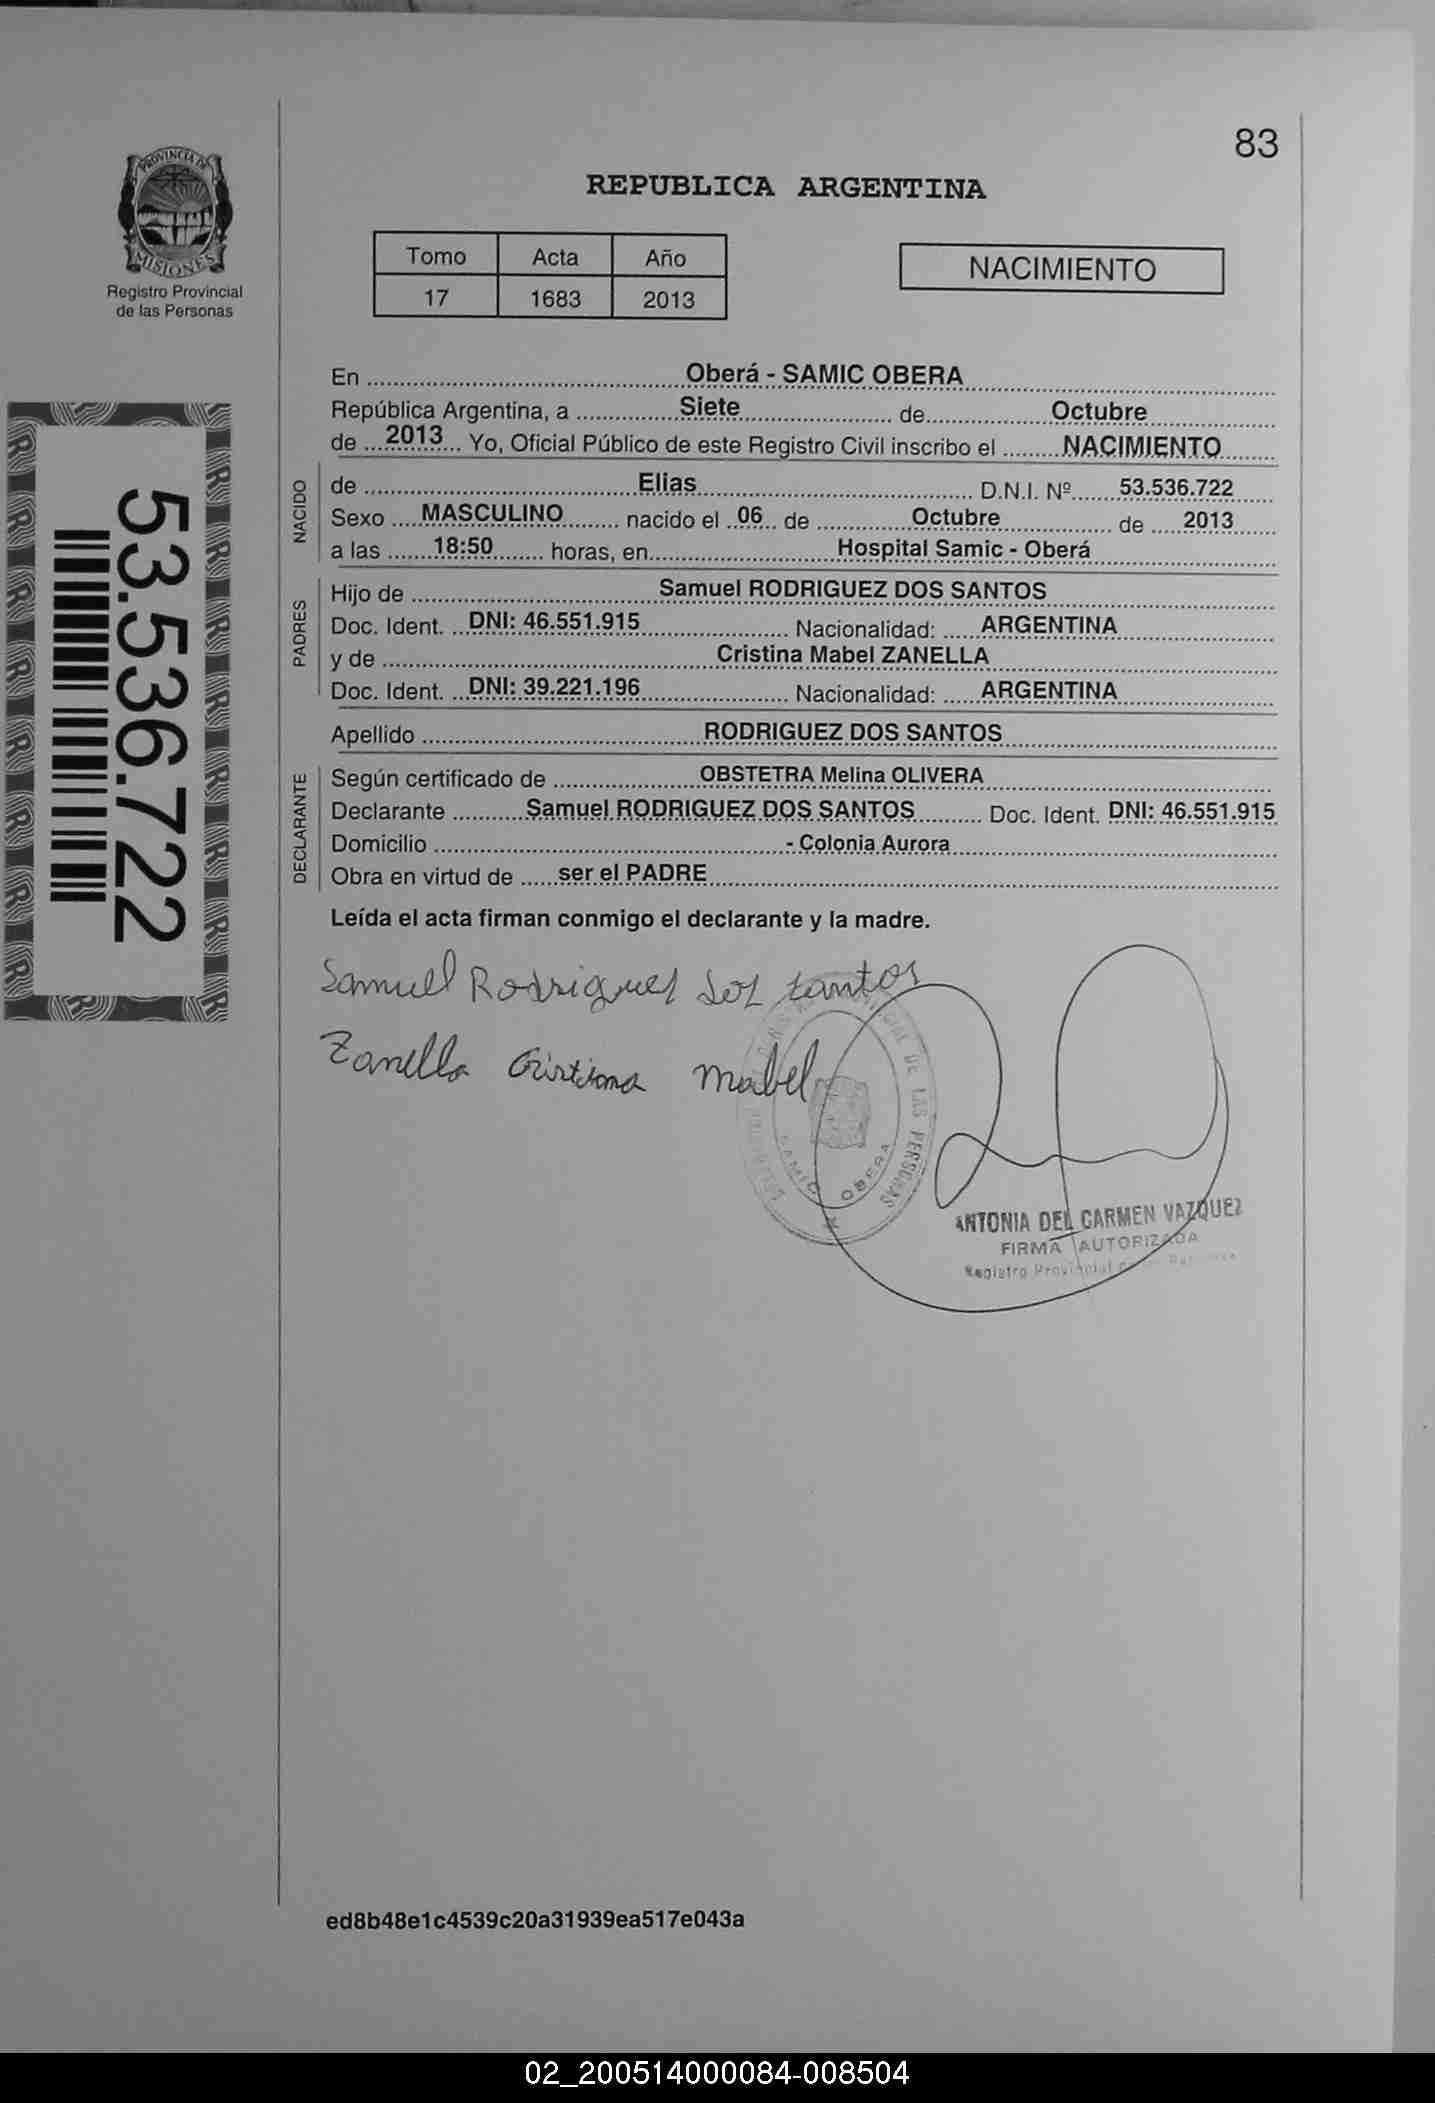 83
REPUBLICA ARGENTINA
PROVINCIA DE
MISIONES
Registro Provincial
de las Personas
Tomo Acta Año
17 1683 2013
NACIMIENTO
53.536.722
En Oberá - SAMIC OBERA
República Argentina, a Siete de Octubre
de 2013 Yo, Oficial Público de este Registro Civil inscribo el NACIMIENTO
NACIDO
de Elias D.N.I. Nº 53.536.722
Sexo MASCULINO nacido el 06 de Octubre de 2013
a las 18:50 horas, en Hospital Samic - Oberá
PADRES
Hijo de Samuel RODRIGUEZ DOS SANTOS
Doc. Ident. DNI: 46.551.915 Nacionalidad: ARGENTINA
y de Cristina Mabel ZANELLA
Doc. Ident. DNI: 39.221.196 Nacionalidad: ARGENTINA
Apellido RODRIGUEZ DOS SANTOS
DECLARANTE
Según certificado de OBSTETRA Melina OLIVERA
Declarante Samuel RODRIGUEZ DOS SANTOS Doc. Ident. DNI: 46.551.915
Domicilio - Colonia Aurora
Obra en virtud de ser el PADRE
Leída el acta firman conmigo el declarante y la madre.
Samuel Rodriguez dos santos
Zanella Cristina Mabel
DE LAS PERSONAS
SAMIC OBERA
ANTONIA DEL CARMEN VAZQUEZ
FIRMA AUTORIZADA
Registro Provincial
ed8b48e1c4539c20a31939ea517e043a
02_200514000084-008504